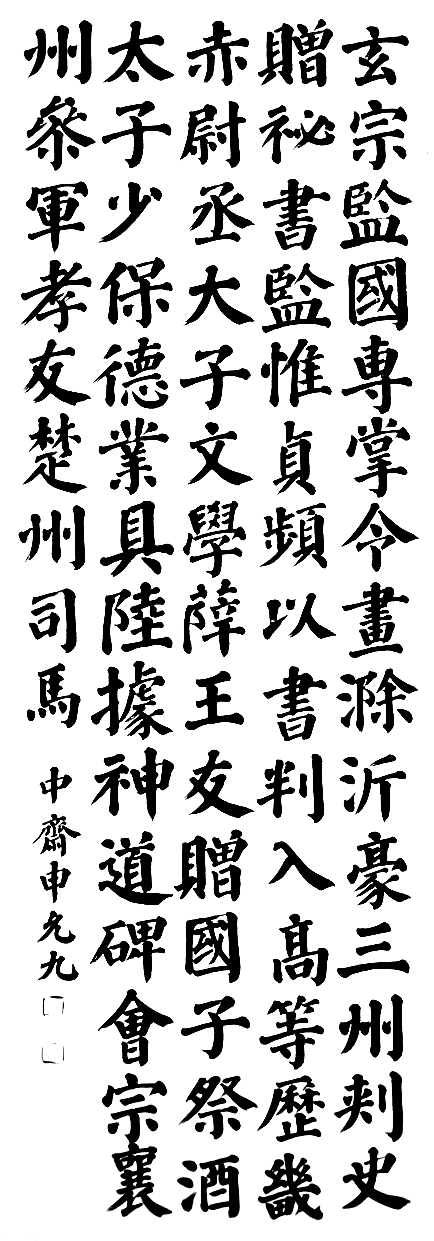 玄宗監國專掌令畫滁沂豪三州刺史
贈祕書監惟貞頻以書判入高等歷畿
赤尉丞大子文學薛王友贈國子祭酒
太子少保德業具陸據神道碑會宗襄
州參軍孝友楚州司馬
中齋申允九